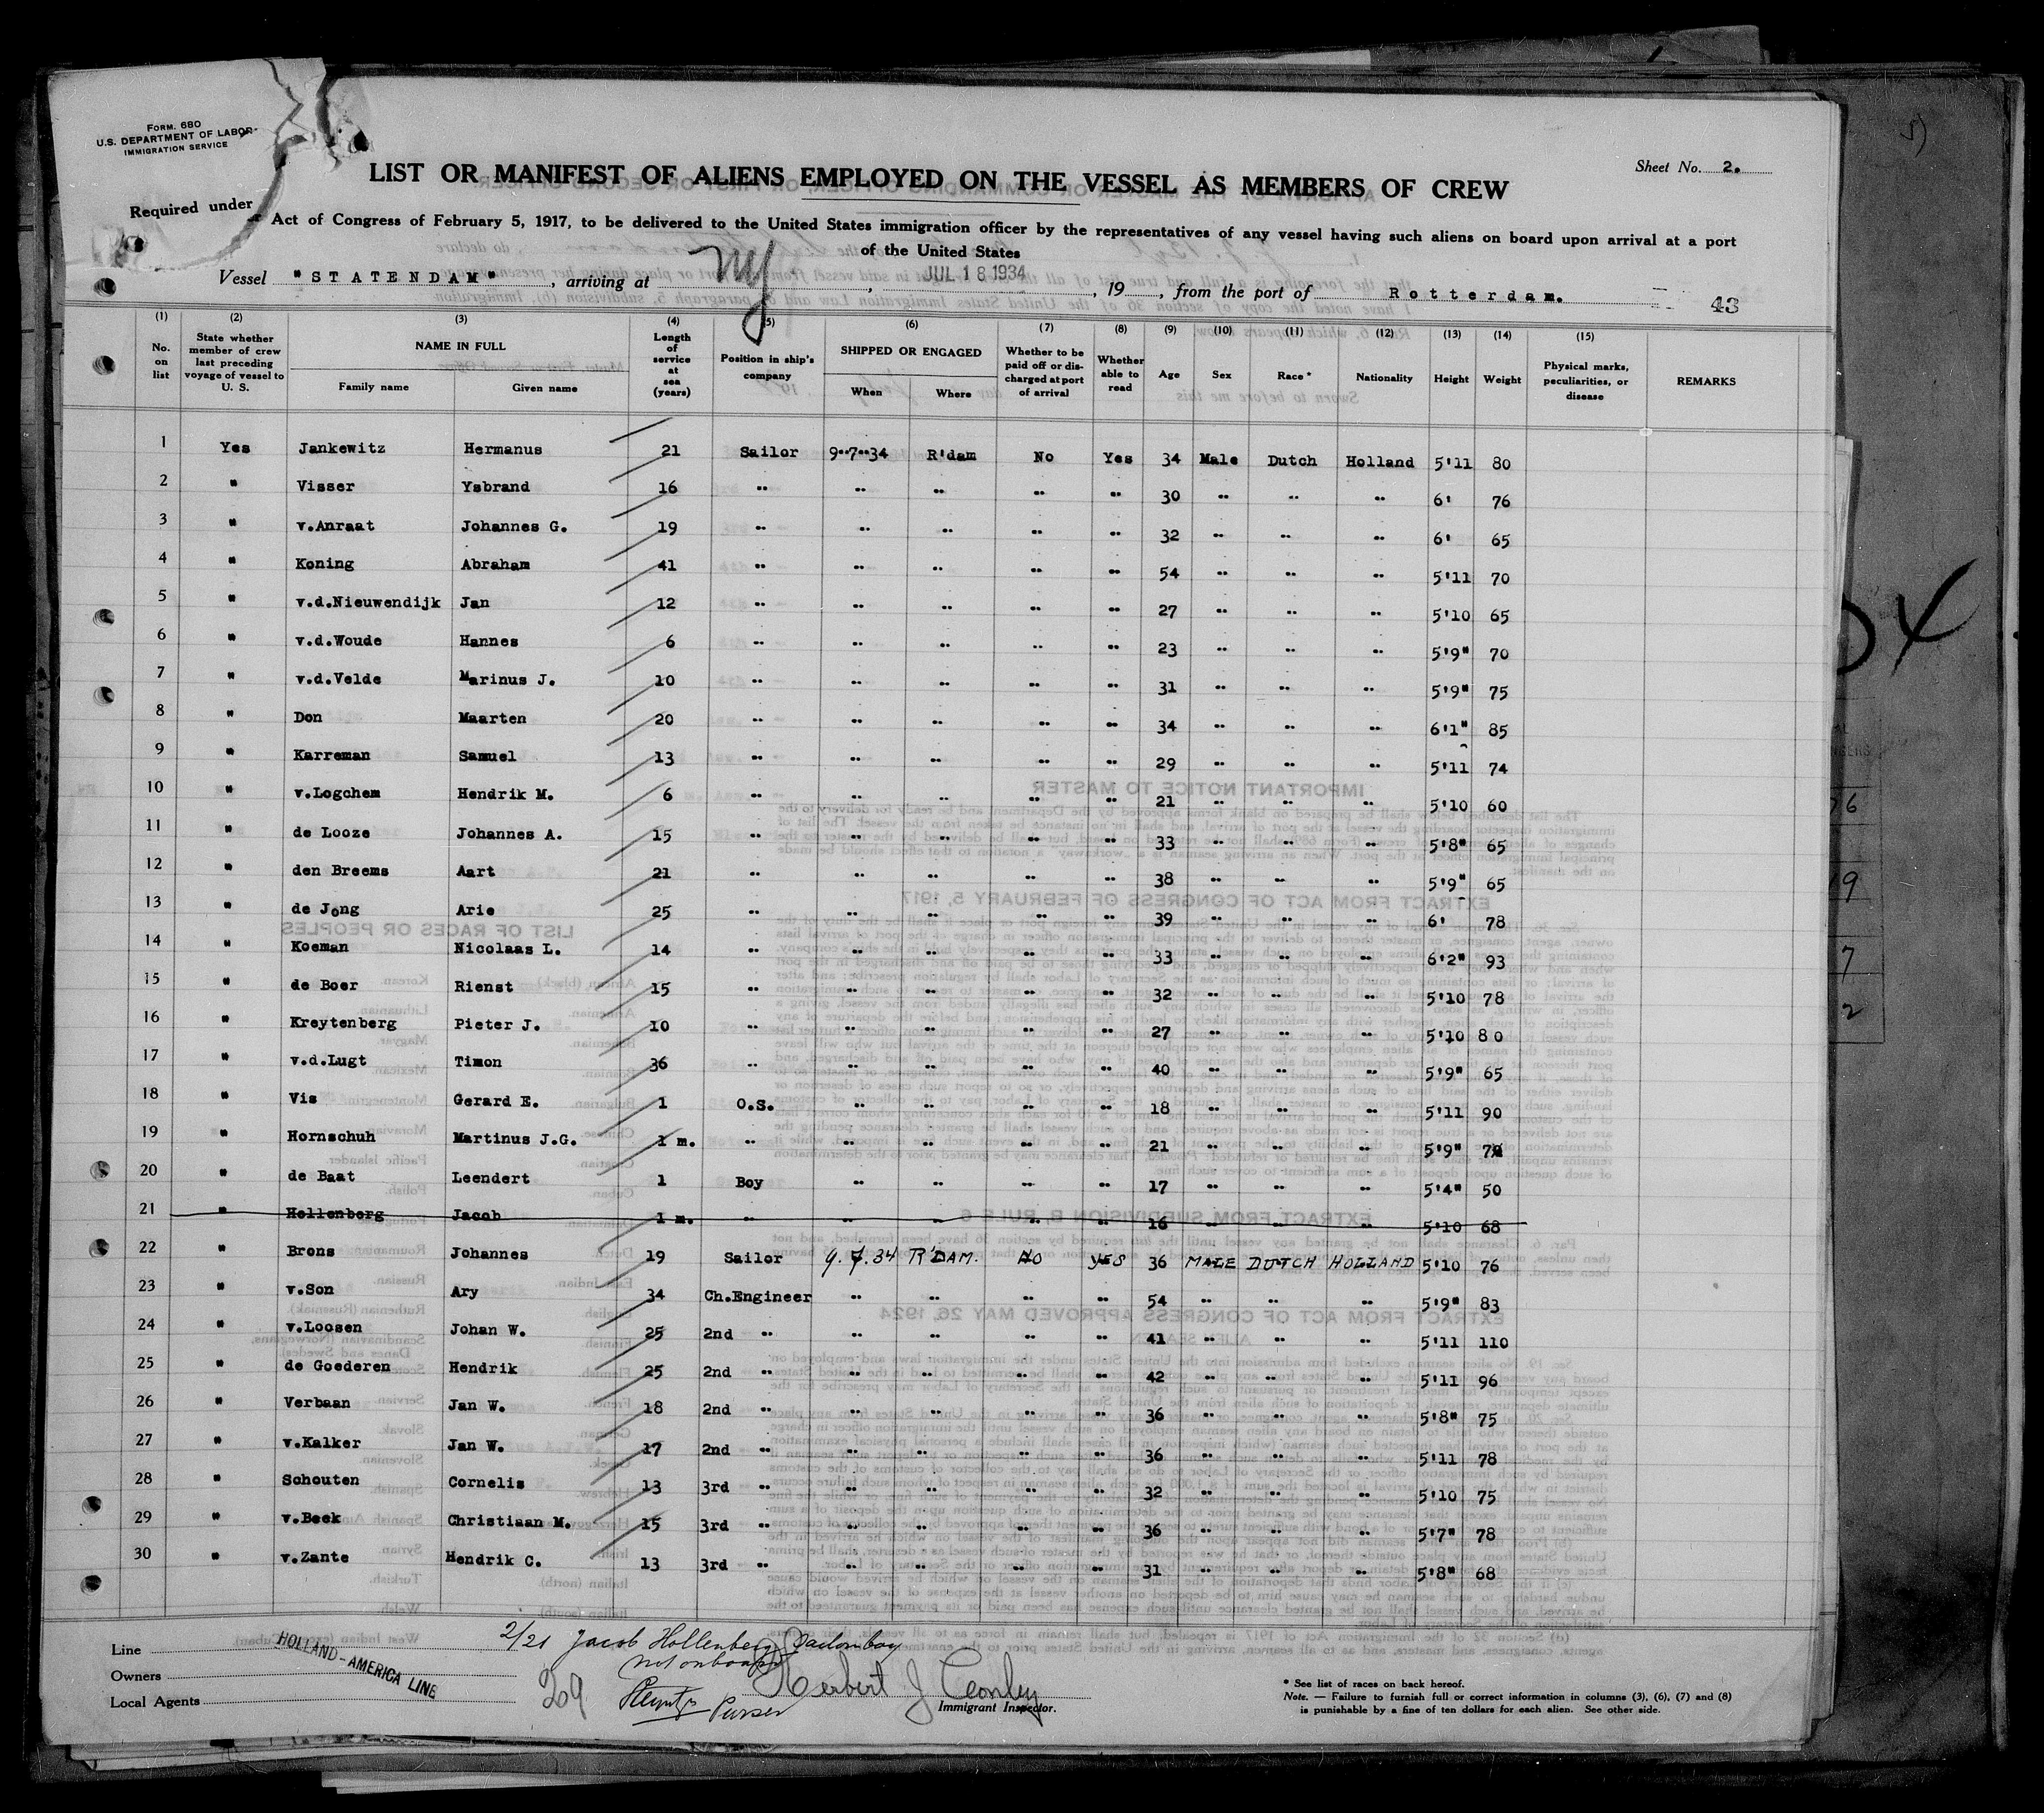 FORM. 680
U.S. DEPARTMENT OF LABOR
IMMIGRATION SERVICE
Sheet No. 2.
LIST OR MANIFEST OF ALIENS EMPLOYED ON THE VESSEL AS MEMBERS OF CREW
Required under Act of Congress of February 5, 1917, to be delivered to the United States immigration officer by the representatives of any vessel having such aliens on board upon arrival at a port
of the United States
Vessel "STATENDAM", arriving at NY, JUL 18 1934, 19 , from the port of Rotterdam.
43
(1) (2) (3) (4) (5) (6) (7) (8) (9) (10) (11) (12) (13) (14) (15)
No. on list | State whether member of crew last preceding voyage of vessel to U. S. | NAME IN FULL Family name Given name | Length of service at sea (years) | Position in ship's company | SHIPPED OR ENGAGED When Where | Whether to be paid off or discharged at port of arrival | Whether able to read | Age | Sex | Race * | Nationality | Height | Weight | Physical marks, peculiarities, or disease | REMARKS
1 Yes Jankewitz Hermanus 21 Sailor 9"7"34 R'dam No Yes 34 Male Dutch Holland 5'11 80
2 " Visser Ysbrand 16 " " " " " 30 " " " 6' 76
3 " v.Anraat Johannes G. 19 " " " " " 32 " " " 6' 65
4 " Koning Abraham 41 " " " " " 54 " " " 5'11 70
5 " v.d.Nieuwendijk Jan 12 " " " " " 27 " " " 5'10 65
6 " v.d.Woude Hannes 6 " " " " " 23 " " " 5'9" 70
7 " v.d.Velde Marinus J. 10 " " " " " 31 " " " 5'9" 75
8 " Don Maarten 20 " " " " " 34 " " " 6'1" 85
9 " Karreman Samuel 13 " " " " " 29 " " " 5'11 74
10 " v.Logchem Hendrik M. 6 " " " " " 21 " " " 5'10 60
11 " de Looze Johannes A. 15 " " " " " 33 " " " 5'8" 65
12 " den Breems Aart 21 " " " " " 38 " " " 5'9" 65
13 " de Jong Arie 25 " " " " " 39 " " " 6' 78
14 " Koeman Nicolaas L. 14 " " " " " 33 " " " 6'2" 93
15 " de Boer Rienst 15 " " " " " 32 " " " 5'10 78
16 " Kreytenberg Pieter J. 10 " " " " " 27 " " " 5'10 80
17 " v.d.Lugt Timon 36 " " " " " 40 " " " 5'9" 65
18 " Vis Gerard E. 1 O.S. " " " " 18 " " " 5'11 90
19 " Hornschuh Martinus J.G. 1 m. " " " " " 21 " " " 5'9"
20 " de Baat Leendert 1 Boy " " " " 17 " " " 5'4" 50
21 " Hollenberg Jacob 1 m. " " " " " 16 " " " 5'10 68
22 " Brons Johannes 19 Sailor 9.7.34 R'DAM. NO YES 36 MALE DUTCH HOLLAND 5'10 76
23 " v.Son Ary 34 Ch.Engineer " " " " 54 " " " 5'9" 83
24 " v.Loosen Johan W. 25 2nd " " " " " 41 " " " 5'11 110
25 " de Goederen Hendrik 25 2nd " " " " " 42 " " " 5'11 96
26 " Verbaan Jan W. 18 2nd " " " " " 36 " " " 5'8" 75
27 " v.Kalker Jan W. 17 2nd " " " " " 36 " " " 5'11 78
28 " Schouten Cornelis 13 3rd " " " " " 32 " " " 5'10 75
29 " v.Beek Christiaan M. 15 3rd " " " " " 36 " " " 5'7" 78
30 " v.Zante Hendrik C. 13 3rd " " " " " 31 " " " 5'8" 68
Line
Owners
Local Agents
HOLLAND-AMERICA LINE
2/21 Jacob Hollenberg
not on board
29
Purser
Herbert J Conley
Immigrant Inspector.
* See list of races on back hereof.
Note. — Failure to furnish full or correct information in columns (3), (6), (7) and (8)
is punishable by a fine of ten dollars for each alien. See other side.